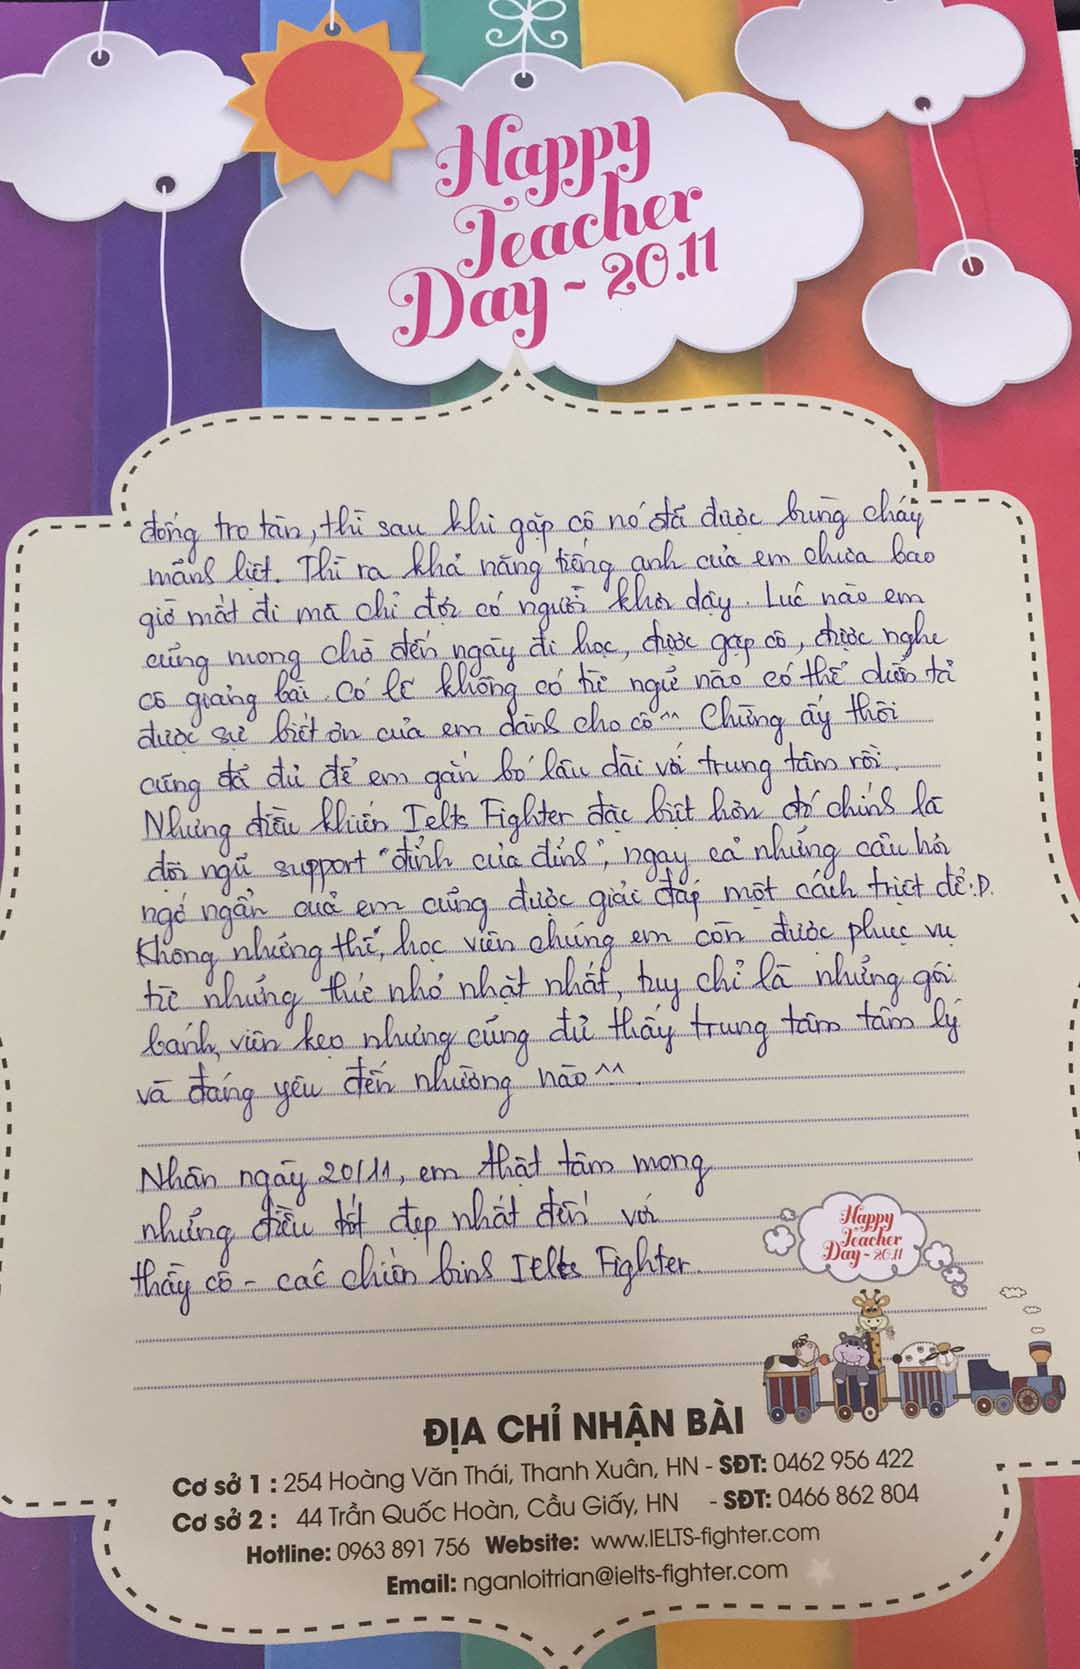 Happy
Teacher
Day ~ 20.11
đống tro tàn, thì sau khi gặp cô nó đã được bùng cháy
mãnh liệt. Thì ra khả năng tiếng anh của em chưa bao
giờ mất đi mà chỉ đợi có người khơi dậy. Lúc nào em
cũng mong chờ đến ngày đi học, được gặp cô, được nghe
cô giảng bài. Có lẽ không có từ ngữ nào có thể diễn tả
được sự biết ơn của em dành cho cô^^ Chừng ấy thôi
cũng đã đủ để em gắn bó lâu dài với trung tâm rồi.
Nhưng điều khiến Ielts Fighter đặc biệt hơn đó chính là
đội ngũ support "đỉnh của đỉnh", ngay cả những câu hỏi
ngớ ngẩn của em cũng được giải đáp một cách triệt để :D.
Không những thế, học viên chúng em còn được phục vụ
từ những thức nhỏ nhặt nhất, tuy chỉ là những gói
bánh, viên kẹo nhưng cũng đủ thấy trung tâm tâm lý
và đáng yêu đến nhường nào^^.
Nhân ngày 20/11, em thật tâm mong
những điều tốt đẹp nhất đến với
thầy cô - các chiến binh Ielts Fighter.
Happy
Teacher
Day ~ 20.11
ĐỊA CHỈ NHẬN BÀI
Cơ sở 1 : 254 Hoàng Văn Thái, Thanh Xuân, HN - SĐT: 0462 956 422
Cơ sở 2 : 44 Trần Quốc Hoàn, Cầu Giấy, HN - SĐT: 0466 862 804
Hotline: 0963 891 756 Website: www.IELTS-fighter.com
Email: nganloitrian@ielts-fighter.com